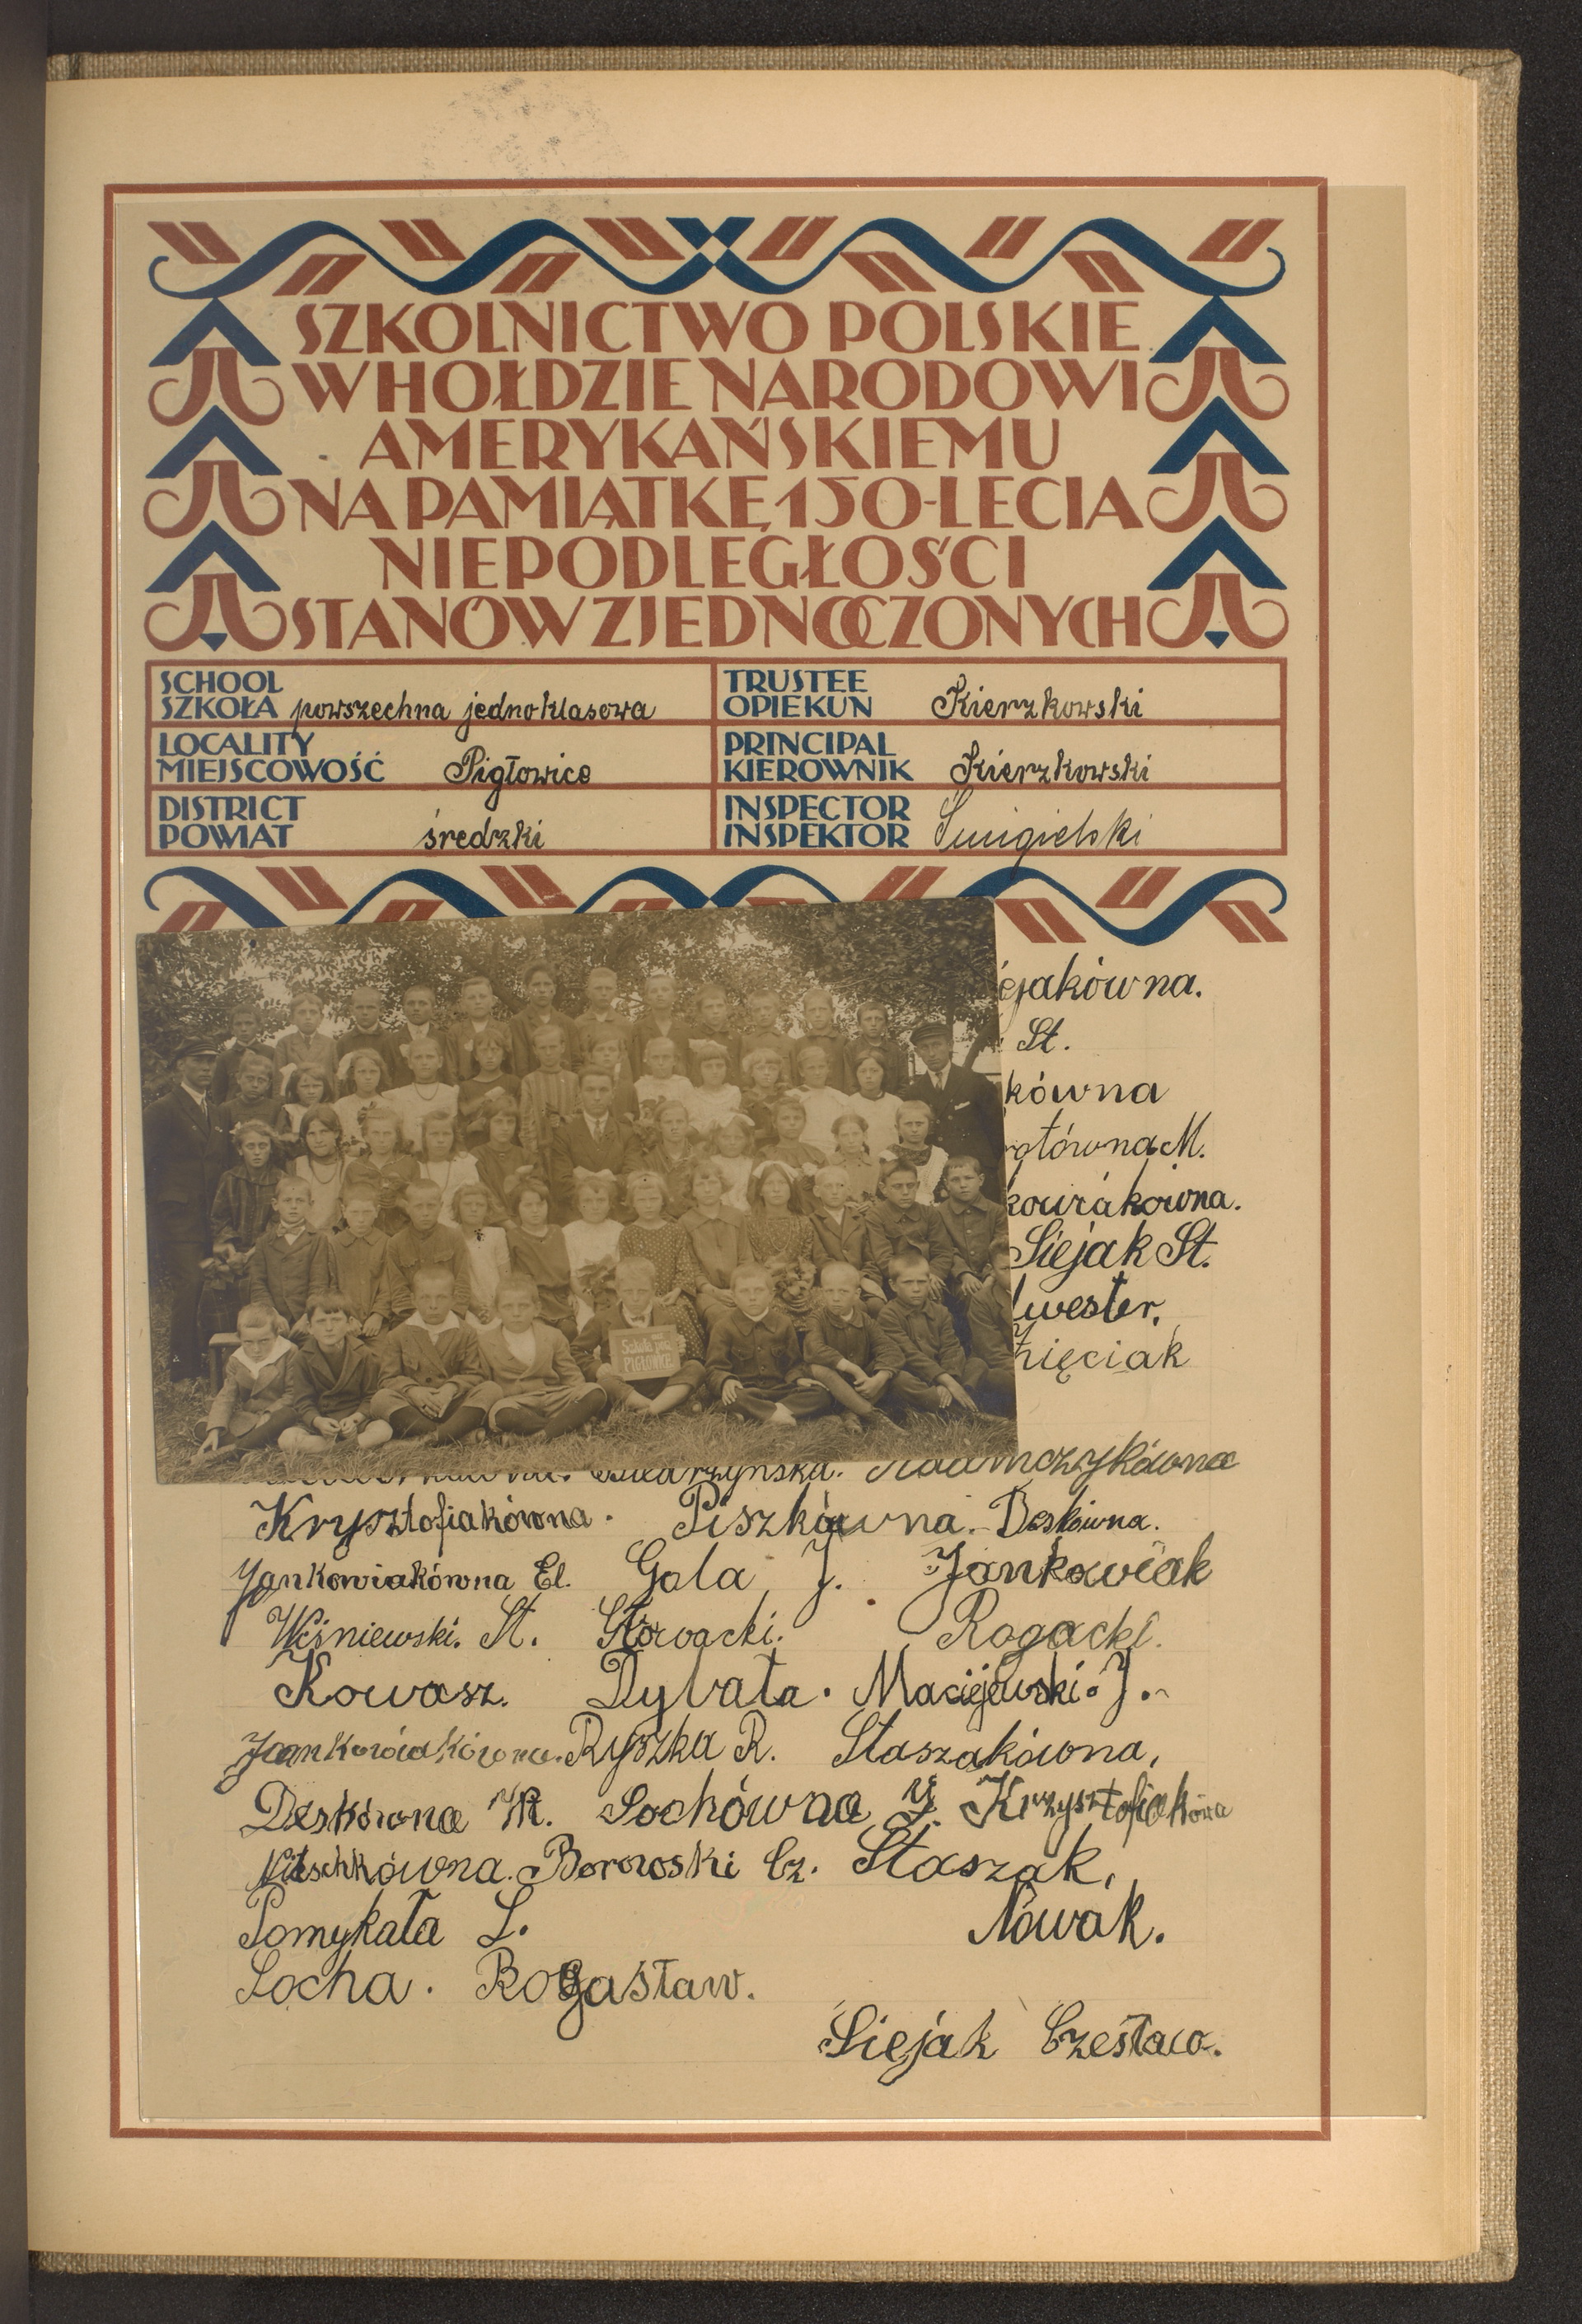 SZKOLNICTWO POLSKIE
W HOŁDZIE NARODOWI
AMERYKAŃSKIEMU
NA PAMIĄTKĘ 150-LECIA
NIEPODLEGŁOŚCI
STANÓW ZJEDNOCZONYCH
SCHOOL
SZKOŁA powszechna jednoklasowa
TRUSTEE
OPIEKUN Kierzkowski
LOCALITY
MIEJSCOWOŚĆ Pigłowice
PRINCIPAL
KIEROWNIK Kierzkowski
DISTRICT
POWIAT średzki
INSPECTOR
INSPEKTOR Śmigielski
ejakówna.
St.
kówna
otówna M.
Siejak St.
lwester.
zięciak
Szkoła
PIGŁOWICE
Adamczykówna
Krysztofiakówna. Piszkówna. Deskówna.
Jankowiakówna El. Gala J. Jankowiak
Wiśniewski. St. Słowacki. Rogacki.
Kowasz. Dybała. Maciejewski. J.
Jankowiakówna. Ryszka R. Staszakówna,
Deskówna M. Sochówna J. Krzysztofiakówna
Nitschkówna. Borowski Cz. Staszak,
Pomykała L. Nowak.
Socha. Rogasław.
Siejak Czesław.